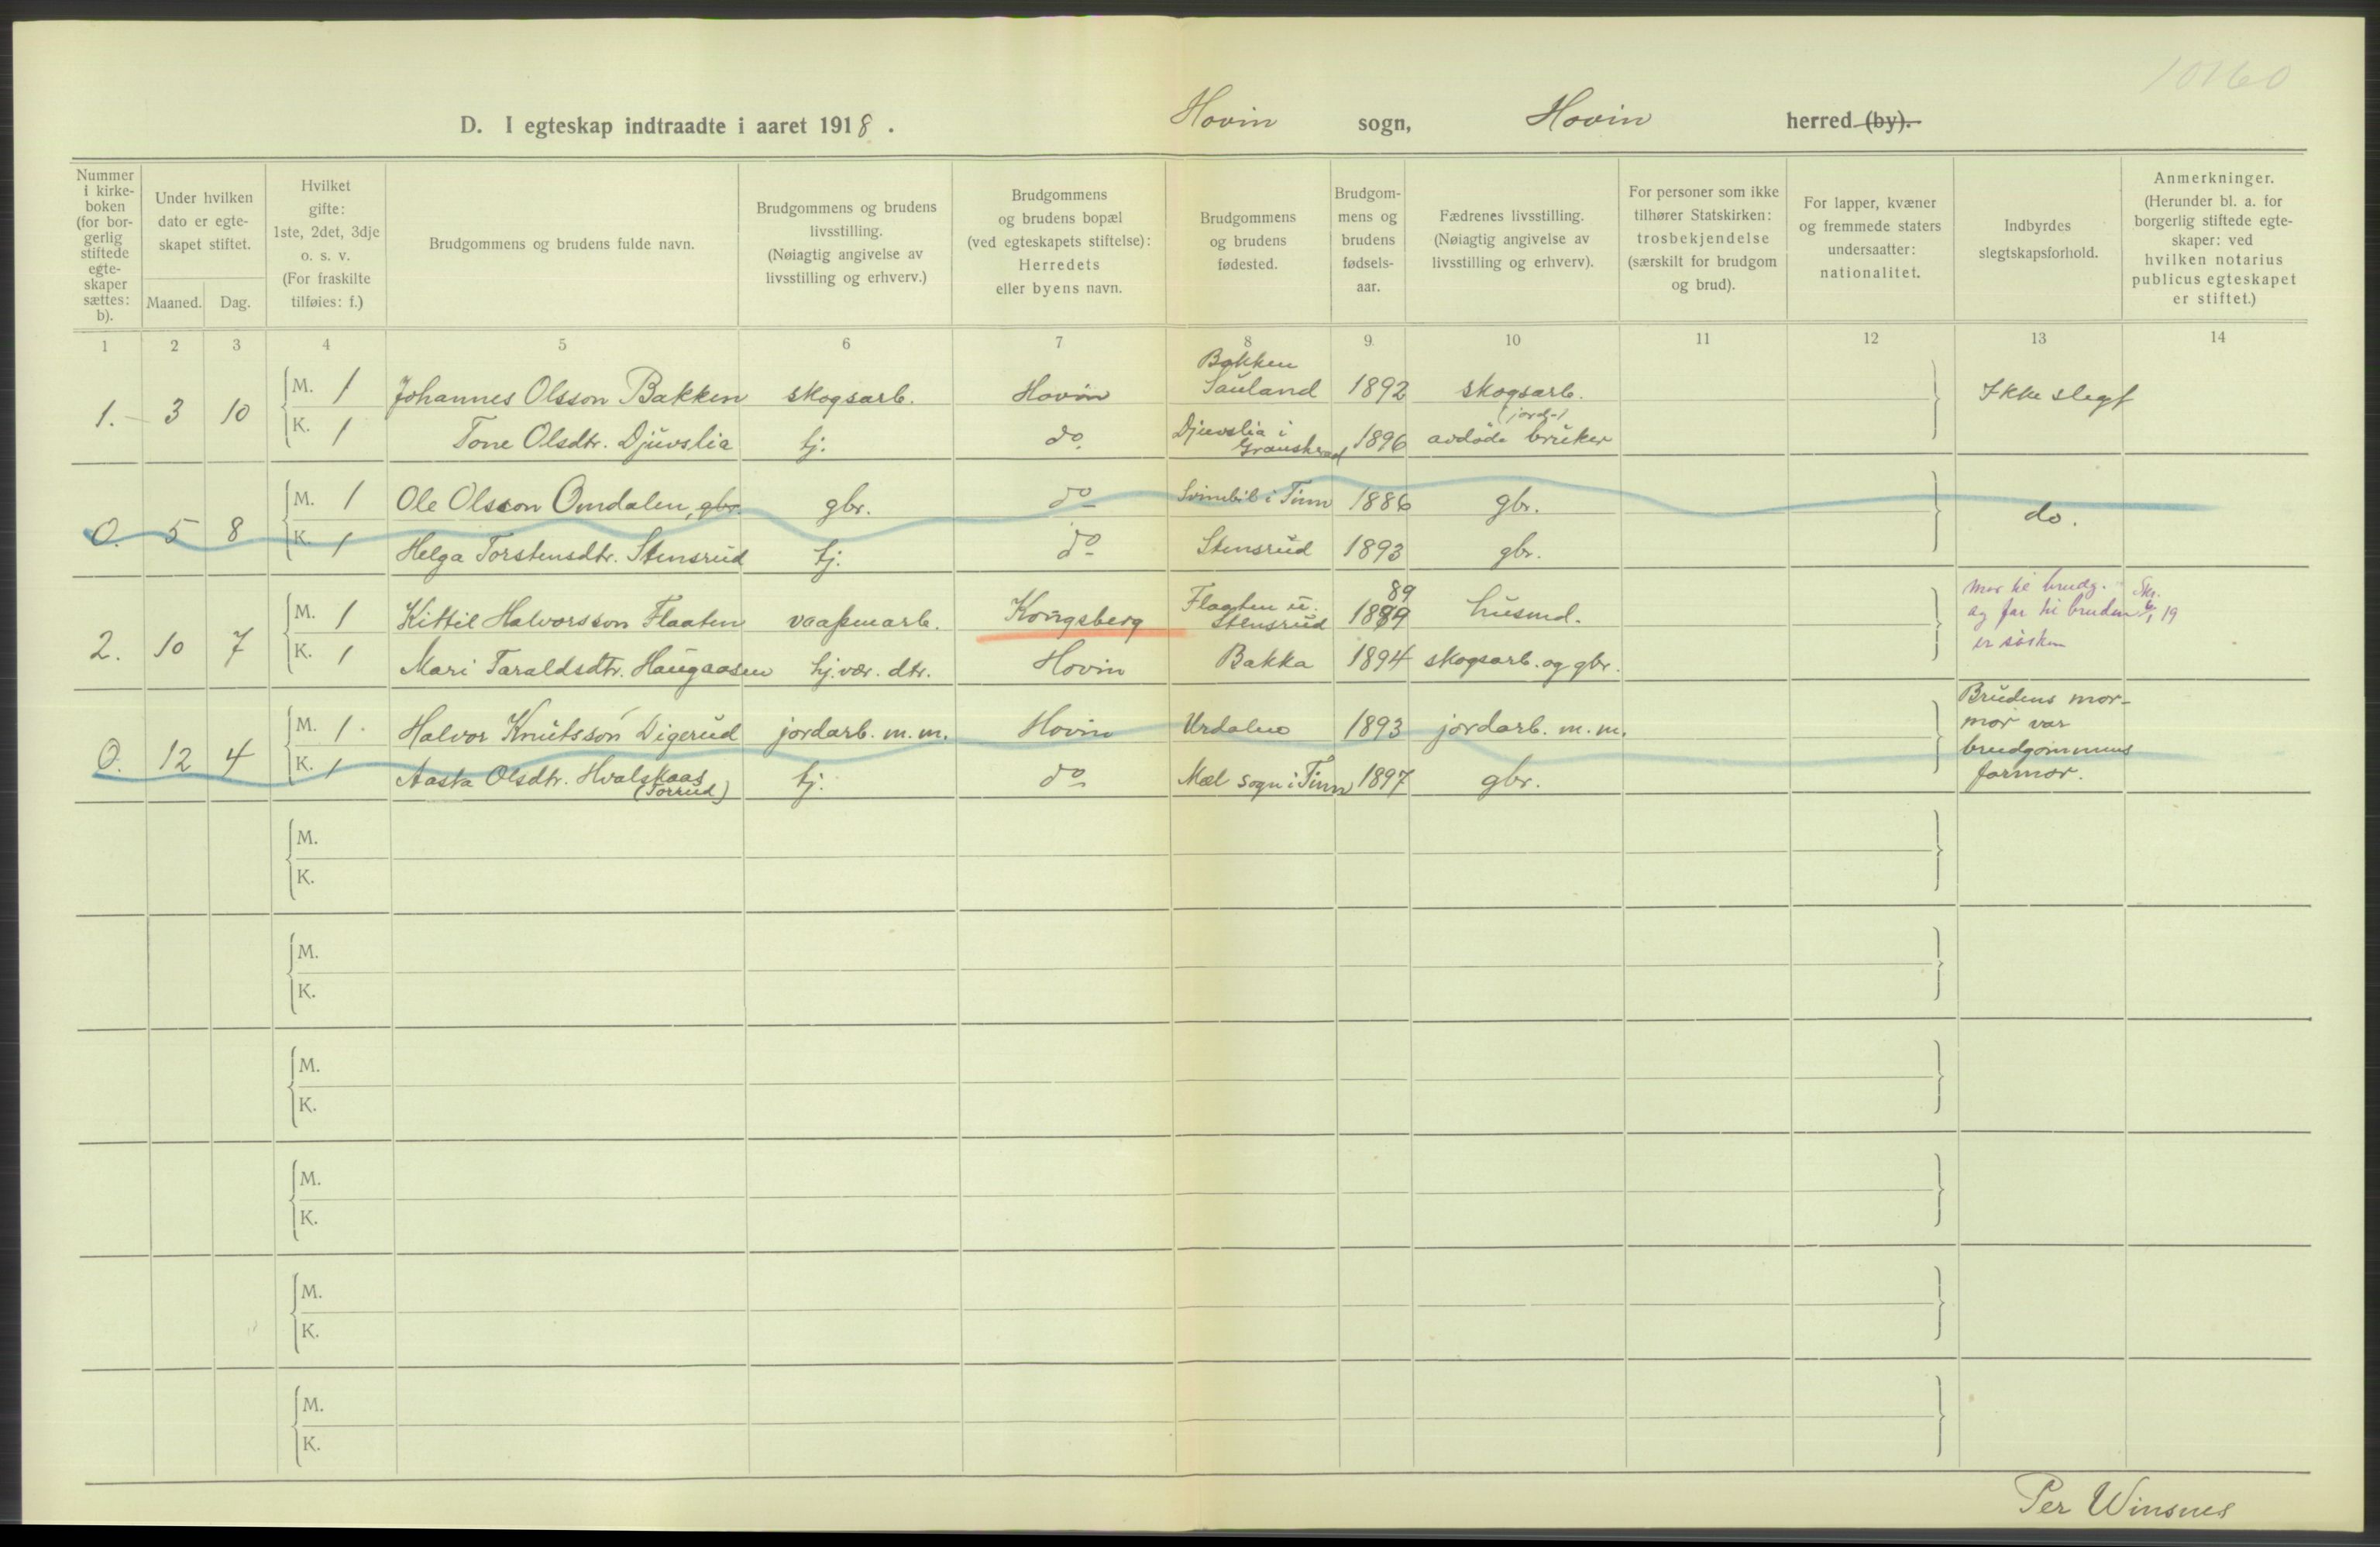 10160
D. I egteskap indtraadte i aaret 1918. Hovin sogn, Hovin herred (by).
Nummer i kirke-boken (for bor-gerlig stiftede egte-skaper sættes: b).
Under hvilken dato er egte-skapet stiftet.
Maaned. Dag.
Hvilket gifte: 1ste, 2det, 3dje o. s. v. (For fraskilte tilføies: f.)
Brudgommens og brudens fulde navn.
Brudgommens og brudens livsstilling. (Nøiagtig angivelse av livsstilling og erhverv.)
Brudgommens og brudens bopæl (ved egteskapets stiftelse): Herredets eller byens navn.
Brudgommens og brudens fødested.
Brudgom-mens og brudens fødsels-aar.
Fædrenes livsstilling. (Nøiagtig angivelse av livsstilling og erhverv).
For personer som ikke tilhører Statskirken: trosbekjendelse (særskilt for brudgom og brud).
For lapper, kvæner og fremmede staters undersaatter: nationalitet.
Indbyrdes slegtskapsforhold.
Anmerkninger. (Herunder bl. a. for borgerlig stiftede egte-skaper: ved hvilken notarius publicus egteskapet er stiftet.)
1 2 3 4 5 6 7 8 9. 10 11 12 13 14
1. 3 10 M. 1 Johannes Olsson Bakken skogsarb. Hovin Bakken Sauland 1892 skogsarb. Ikke slegt
K. 1 Tone Olsdtr. Djuvslia tj. do Djuvslia i Gransherad 1896 avdøde (jord-) bruker
0. 5 8 M. 1 Ole Olsson Omdalen, gbr. gbr. do Svinebil i Tinn 1886 gbr. do.
K. 1 Helga Torstensdtr. Stensrud tj. do Stensrud 1893 gbr.
2. 10 7 M. 1 Kittil Halvorsson Flaaten vaapenarb. Kongsberg Flaaten u. Stensrud 1889 89 husmd. mor til brudg. og far til bruden er søsken 19
K. 1 Mari Taraldsdtr. Haugaasen hj. vær. dtr. Hovin Bakka 1894 skogsarb. og gbr.
0. 12 4 M. 1. Halvor Knutsson Digerud jordarb. m. m. Hovin Urdalen 1893 jordarb. m. m. Brudens mor-mor var brudgommens farmor.
K. 1 Aasta Olsdtr. Hvalskaas (Torrud) tj. do Mæl sogn i Tinn 1897 gbr.
M.
K.
M.
K.
M.
K.
M.
K.
M.
K.
M.
K.
Per Winsnes